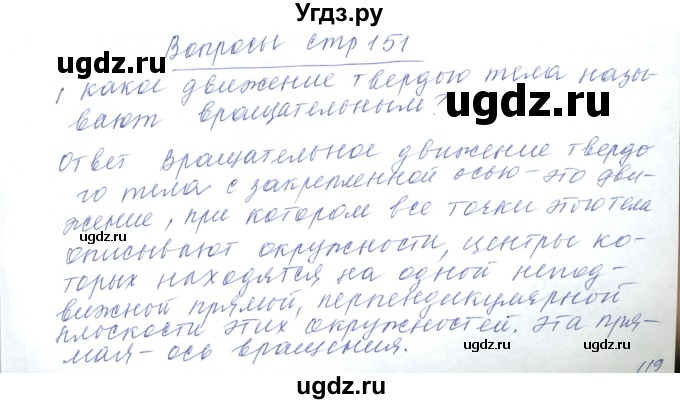 Угдз.ру
Вопросы стр 151
1 какое движение твердого тела назы-
вают вращательным?
Ответ Вращательное движение твердо
го тела с закрепленной осью - это дви-
жение, при котором все точки этого тела
описывают окружности, центры ко-
торых находятся на одной непод-
вижной прямой, перпендикулярной
плоскости этих окружностей. Эта пря-
мая - ось вращения.
119
ugdz.ru
ugdz.ru
ugdz.ru
ugdz.ru
ugdz.ru
ugdz.ru
ugdz.ru
ugdz.ru
ugdz.ru